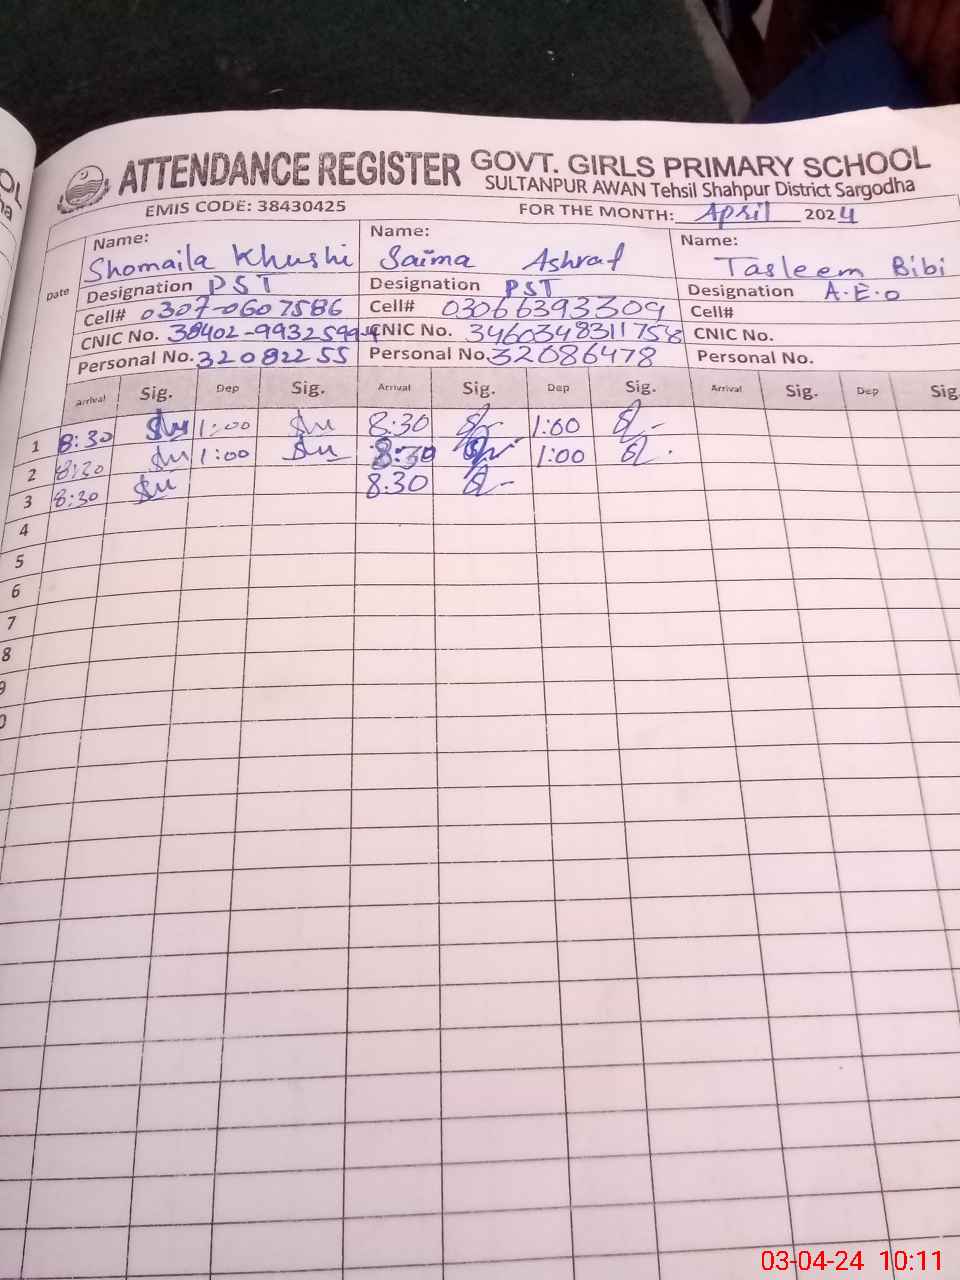 ATTENDANCE REGISTER GOVT. GIRLS PRIMARY SCHOOL
SULTANPUR AWAN Tehsil Shahpur District Sargodha
EMIS CODE: 38430425 FOR THE MONTH: April 2024
Date Name: Shomaila Khushi Name: Saima Ashraf Name: Tasleem Bibi
Designation PST Designation PST Designation A.E.O
Cell# 0307-0607586 Cell# 03066393309 Cell#
CNIC No. CNIC No. 3460348311758 CNIC No.
Personal No. 32082255 Personal No. 32086478 Personal No.
Arrival Sig. Dep Sig. Arrival Sig. Dep Sig. Arrival Sig. Dep Sig.
1 8:30 1:00 8:30 1:00
2 8:30 1:00 8:30 1:00
3 8:30 8:30
4
5
6
7
8
9
0
03-04-24 10:11